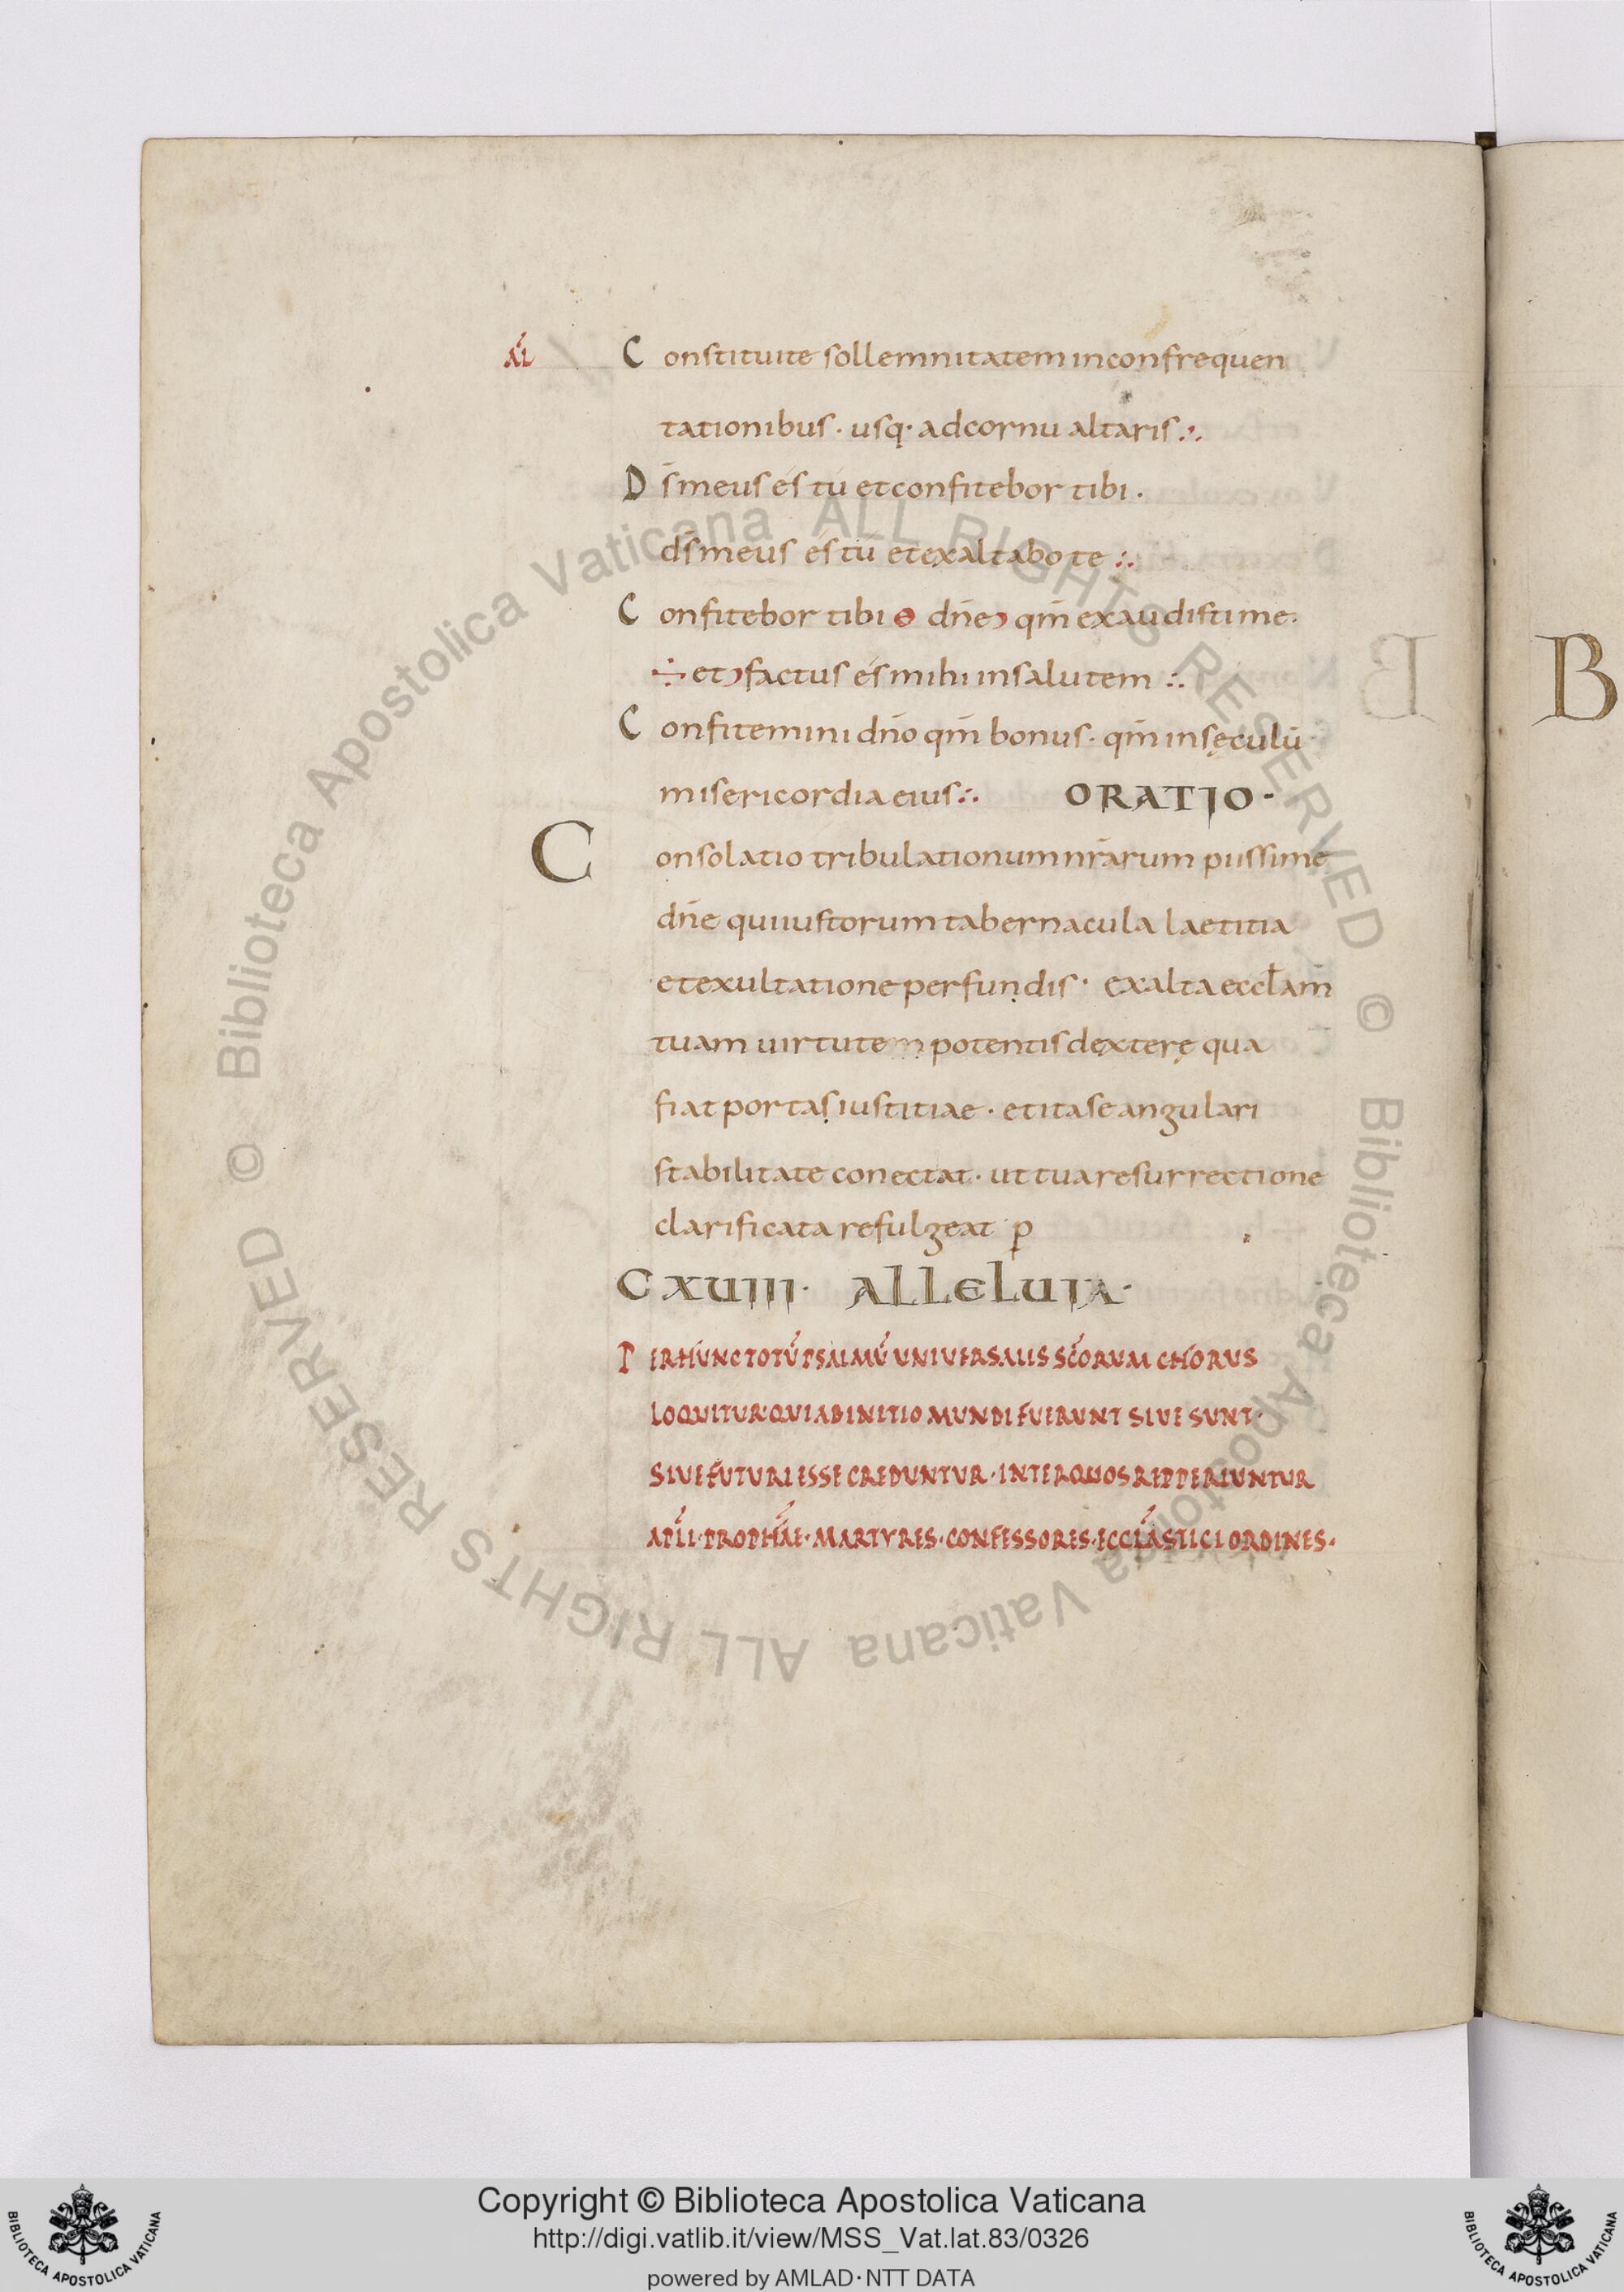 AL Constituite sollemnitatem inconfrequen
tationibus · usq· adcornu altaris ∴
Ds̄ meus és tú etconfitebor tibi ·
ds̄ meus és tú etexaltabo te ∴
Confitebor tibi ɵ dn̄e qm̄ exaudisti me ·
÷ et factus és mihi insalutem ∴
Confitemini dn̄o qm̄ bonus · qm̄ insęculū
misericordia eius ∴ ORATIO ·
Consolatio tribulationum nr̄arum piissime
dn̄e quiiustorum tabernacula laetitia
etexultatione perfundis · exalta eccl̄am
tuam uirtutem potentis dexterę qua
fiat portas iustitiae · etitase angulari
stabilitate conectat · ut tua resurrectione
clarificata refulgeat p̄
CXUIII · ALLELUIA ·
PER HUNC TOTŪ PSALMŪ UNIUERSALIS SC̄ORUM CHORUS
LOQUITUR· QUI AB INITIO MUNDI FUERUNT SIUE SUNT ·
SIUE FUTURI ESSE CREDUNTUR · INTER QUOS REPPERIUNTUR
APL̄I · PROPHAE · MARTYRES · CONFESSORES · ECCLĀSTICI ORDINES ·
B
© Biblioteca Apostolica Vaticana ALL RIGHTS RESERVED © Biblioteca Apostolica Vaticana ALL RIGHTS RESERVED
Copyright © Biblioteca Apostolica Vaticana
http://digi.vatlib.it/view/MSS_Vat.lat.83/0326
powered by AMLAD · NTT DATA
BIBLIOTECA APOSTOLICA VATICANA
BIBLIOTECA APOSTOLICA VATICANA